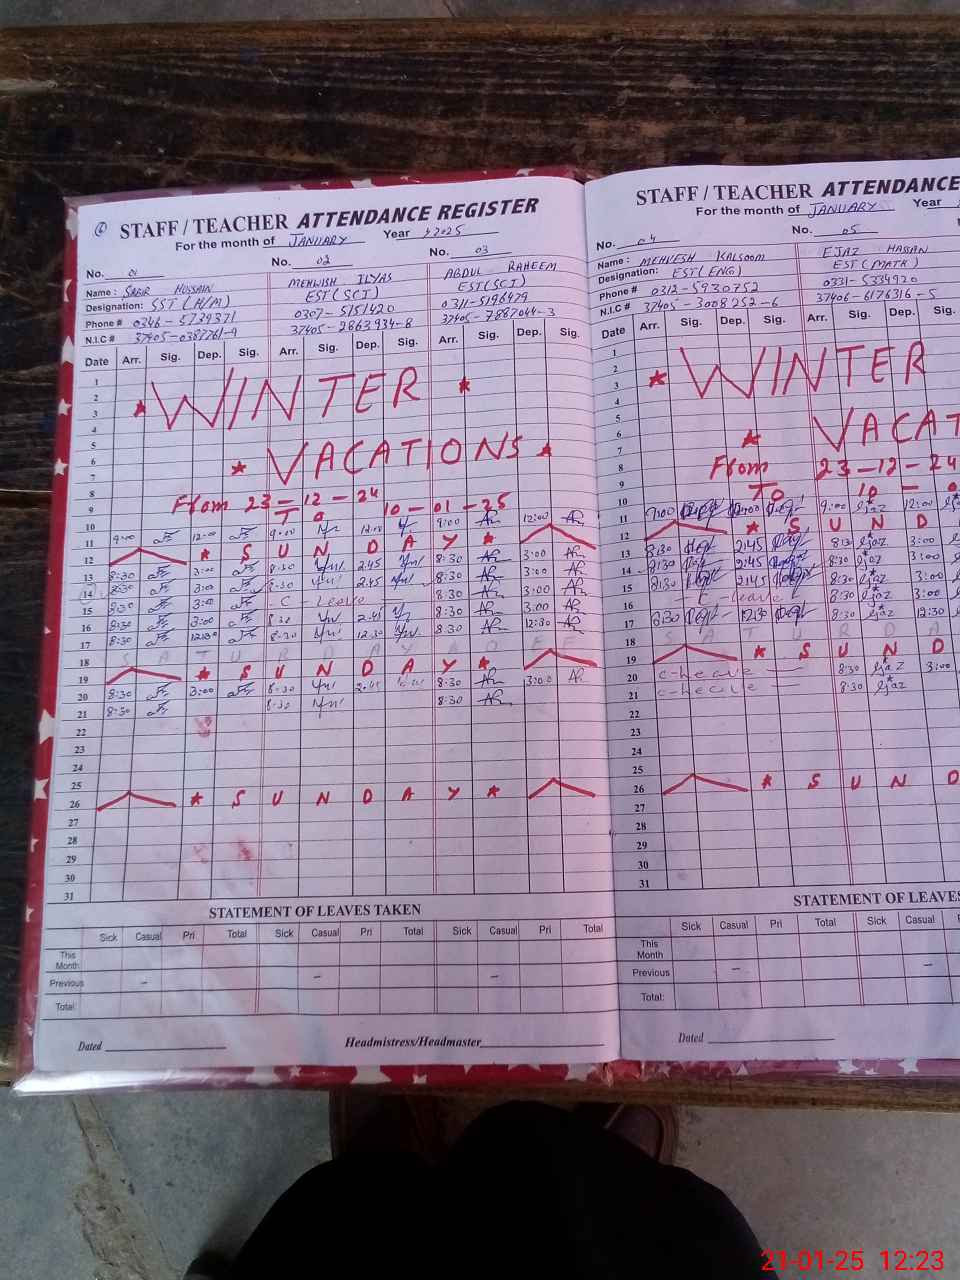 STAFF / TEACHER ATTENDANCE REGISTER
For the month of JANUARY Year 2025
No. 01 No. 02 No. 03
Name : SABIR HUSSAIN MEHWISH ILYAS ABDUL RAHEEM
Designation: SST (H/M) EST (SCI) EST (SCI)
Phone # 0346-5739371 0307-5151420 0311-5196479
N.I.C # 37405-0387761-9 37405-2863934-8 37405-7887044-3
Date Arr. Sig. Dep. Sig. Arr. Sig. Dep. Sig. Arr. Sig. Dep. Sig.
1
2
3
4
★ WINTER ★
5
6
7
★ VACATIONS ★
8
9
From 23-12-24
10
To 10-01-25
11 9:00 12:00 9:00 12:00 9:00 12:00
12 ★ SUNDAY ★
13 8:30 3:00 8:30 2:45 8:30 3:00
14 8:30 3:00 8:30 2:45 8:30 3:00
15 8:30 3:00 C-Leave 8:30 3:00
16 8:30 3:00 8:30 2:45 8:30 3:00
17 8:30 12:30 8:30 12:30 8:30 12:30
18 SATURDAY OFF
19 ★ SUNDAY ★
20 8:30 3:00 8:30 2:45 8:30 3:00
21 8:30 8:30 8:30
22
23
24
25
26 ★ SUNDAY ★
27
28
29
30
31
STATEMENT OF LEAVES TAKEN
Sick Casual Pri Total Sick Casual Pri Total Sick Casual Pri Total
This Month
Previous - - -
Total:
Dated Headmistress/Headmaster
STAFF / TEACHER ATTENDANCE
For the month of JANUARY Year
No. 04 No. 05
Name : MEHVESH KALSOOM EJAZ HASSAN
Designation: EST (ENG) EST (MATH)
Phone # 0312-5930752 0331-5334920
N.I.C # 37405-3008252-6 37406-6176316-5
Date Arr. Sig. Dep. Sig. Arr. Sig. Dep.
1
2
3
4
★ WINTER
5
6
7
★ VACAT
8
From 23-12-24
9
10
To 10-0
11 9:00 12:00 9:00 Ejaz 12:00
12 ★ SUND
13 8:30 2:45 8:30 Ejaz 3:00
14 8:30 2:45 8:30 Ejaz 3:00
15 8:30 2:45 8:30 Ejaz 3:00
16 C-leave 8:30 Ejaz 3:00
17 8:30 12:30 8:30 Ejaz 12:30
18 SATURDA
19 ★ SUND
20 C-leave 8:30 Ejaz 3:00
21 C-leave 8:30 Ejaz
22
23
24
25
26 ★ SUND
27
28
29
30
31
STATEMENT OF LEAVES
Sick Casual Pri Total Sick Casual
This Month
Previous - -
Total:
Dated
21-01-25 12:23